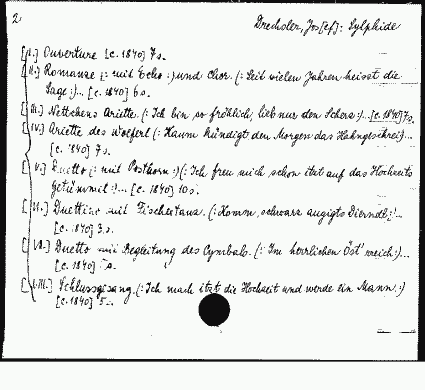 2 Drechsler, Jos[ef]: Sylphide
[I.] Ouverture [c. 1840] 7 s.
[II.] Romanze (: mit Echo :) und Chor. (: Seit vielen Jahren heisst die
Sage :)... [c. 1840] 6 s.
[III.] Nettchens Ariette. (: Ich bin so fröhlich, lieb nur den Scherz :)... [c. 1840] 7 s.
[IV.] Ariette des Wolferl (: Kaum kündigt den Morgen das Hahngeschrei :)...
[c. 1840] 7 s.
[V.] Duetto (: mit Posthorn :) (: Ich freu mich schon itzt auf das Hochzeits
getümmel :)... [c. 1840] 10 s.
[VI.] Duettino mit Fischertanz. (: Komm, schwarz augigts Dierndl :)...
[c. 1840] 3 s.
[VII.] Duetto mit Begleitung des Cymbals. (: Im herrlichen Ost reich :)...
[c. 1840] s.
[VIII.] Schlussgesang. (: Ich mach itzt die Hochzeit und werde ein Mann. :)
[c. 1840] 5